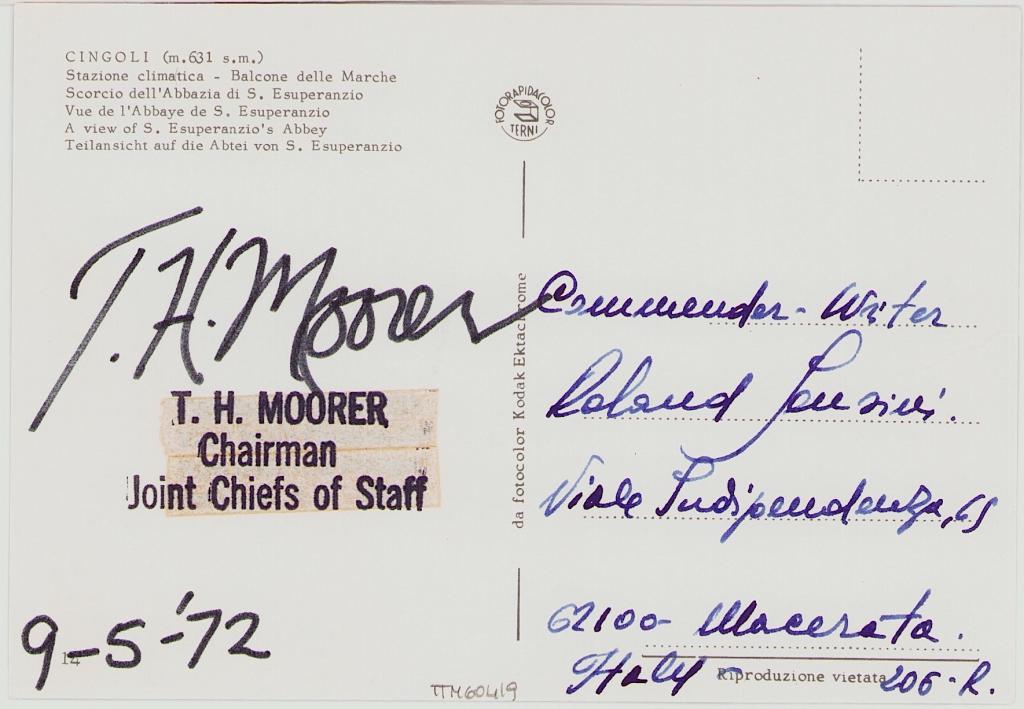 CINGOLI (m.631 s.m.)
Stazione climatica - Balcone delle Marche
Scorcio dell'Abbazia di S. Esuperanzio
Vue de l'Abbaye de S. Esuperanzio
A view of S. Esuperanzio's Abbey
Teilansicht auf die Abtei von S. Esuperanzio
FOTORAPIDACOLOR
TERNI
T. H. Moorer
T. H. MOORER
Chairman
Joint Chiefs of Staff
9-5-'72
14
da fotocolor Kodak Ektachrome
Commender-Writer
Roland
Viale Indipendenza, 69
62100- Macerata.
Italy - 206-R.
Riproduzione vietata
TTM60419